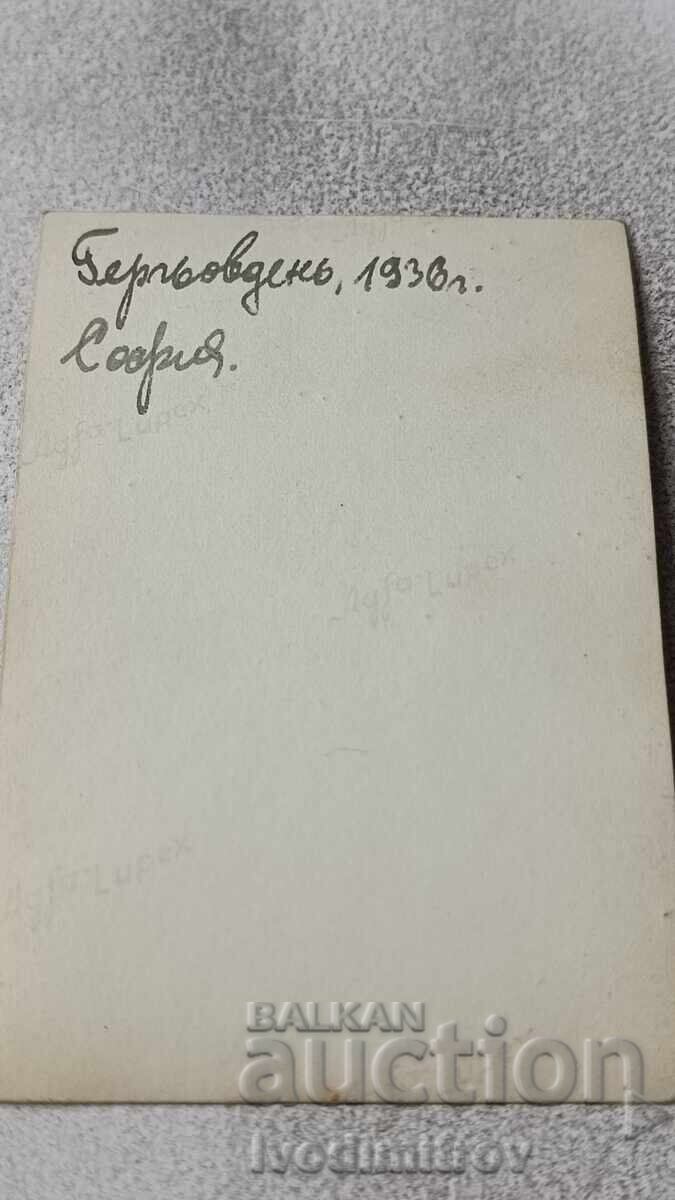 Гергьовдень, 1936г.
София.
Agfa-Lupex
Agfa-Lupex
Agfa-Lupex
BALKAN
auction
ivodimitrov